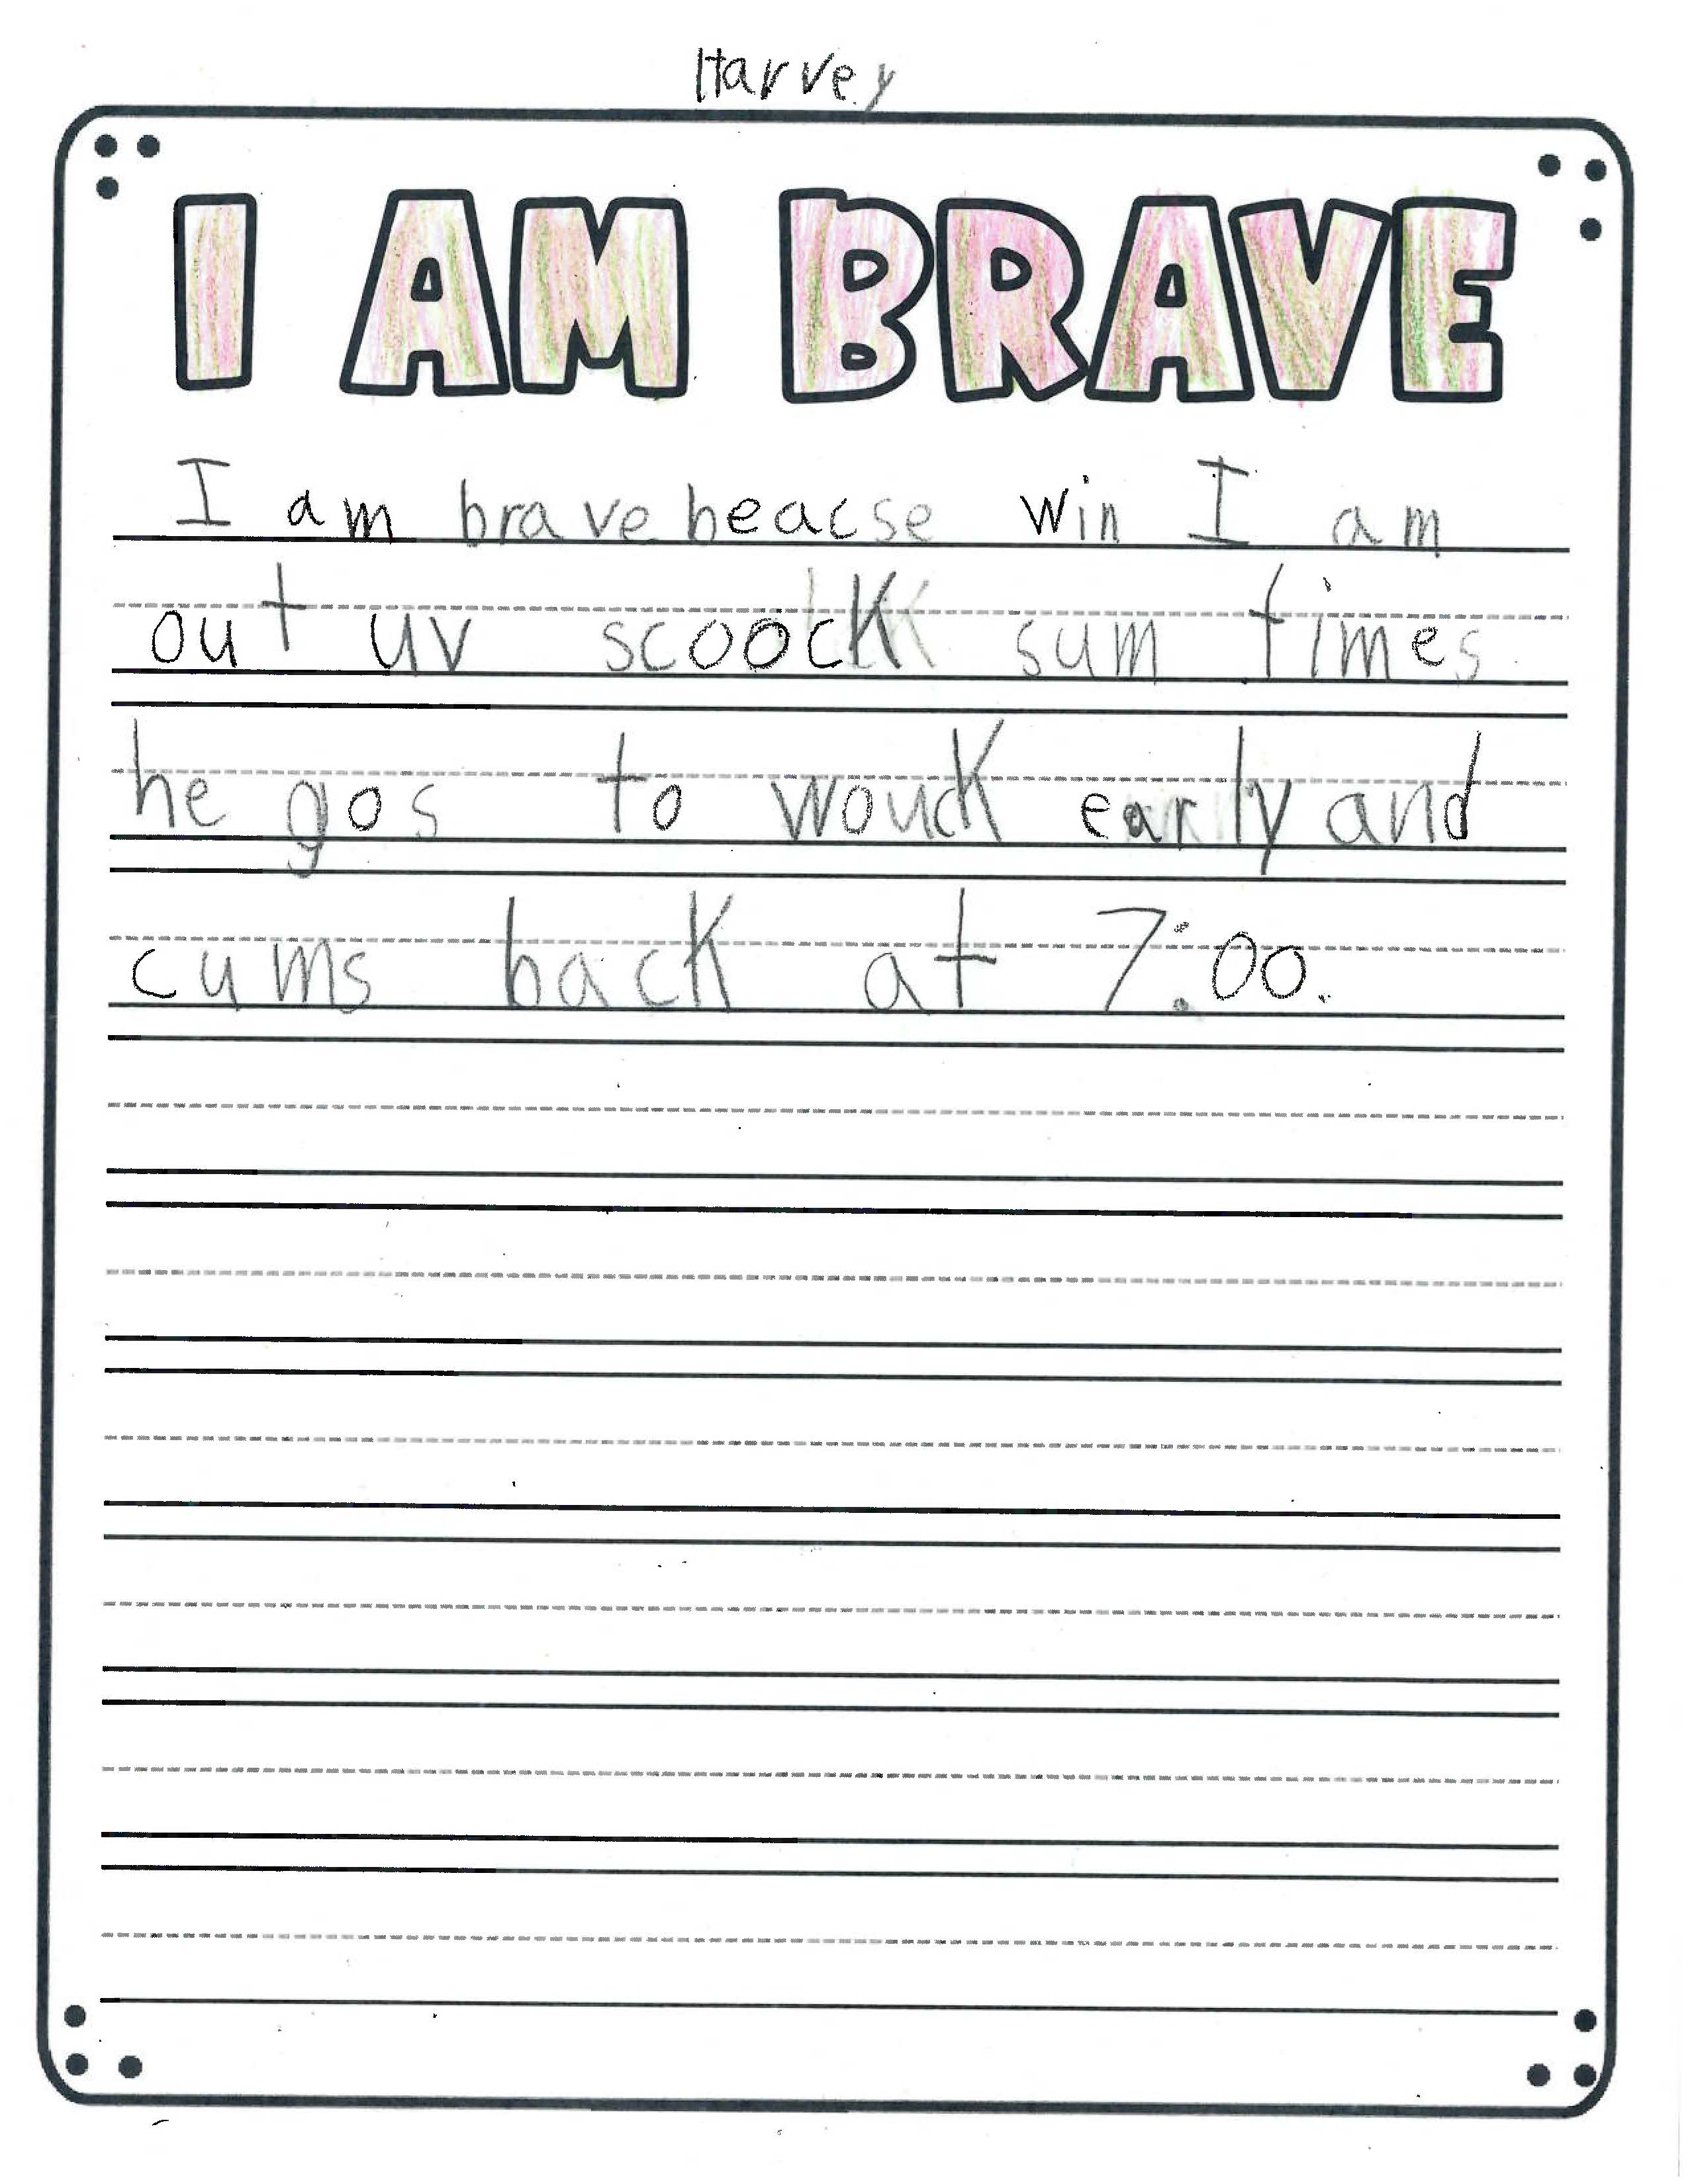 Harvey
I AM BRAVE
I am brave beacse win I am
out uv scoock sum times
he gos to wouck early and
cums back at 7:00.